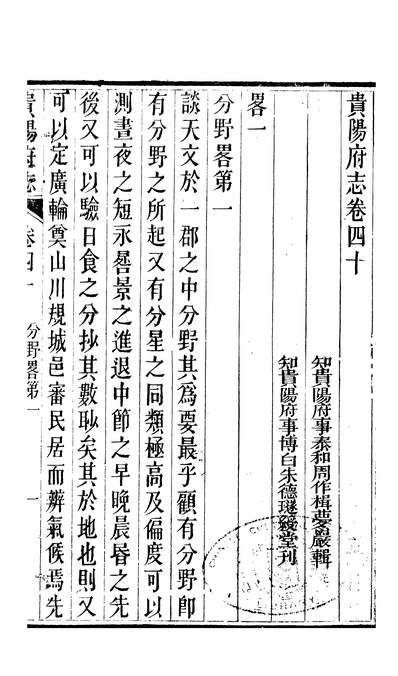 貴陽府志卷四十
知貴陽府事泰和周作楫夢巖輯
知貴陽府事博白朱德璲綬堂刊
畧一
分野畧第一
談天文於一郡之中分野其爲要最乎顧有分野卽
有分野之所起又有分星之同類極高及偏度可以
測晝夜之短永晷景之進退中節之早晚晨昏之先
後又可以驗日食之分抄其數眇矣其於地也則又
可以定廣輪奠山川規城邑審民居而辨氣候焉先
貴陽府志 卷四十 分野畧第一 一